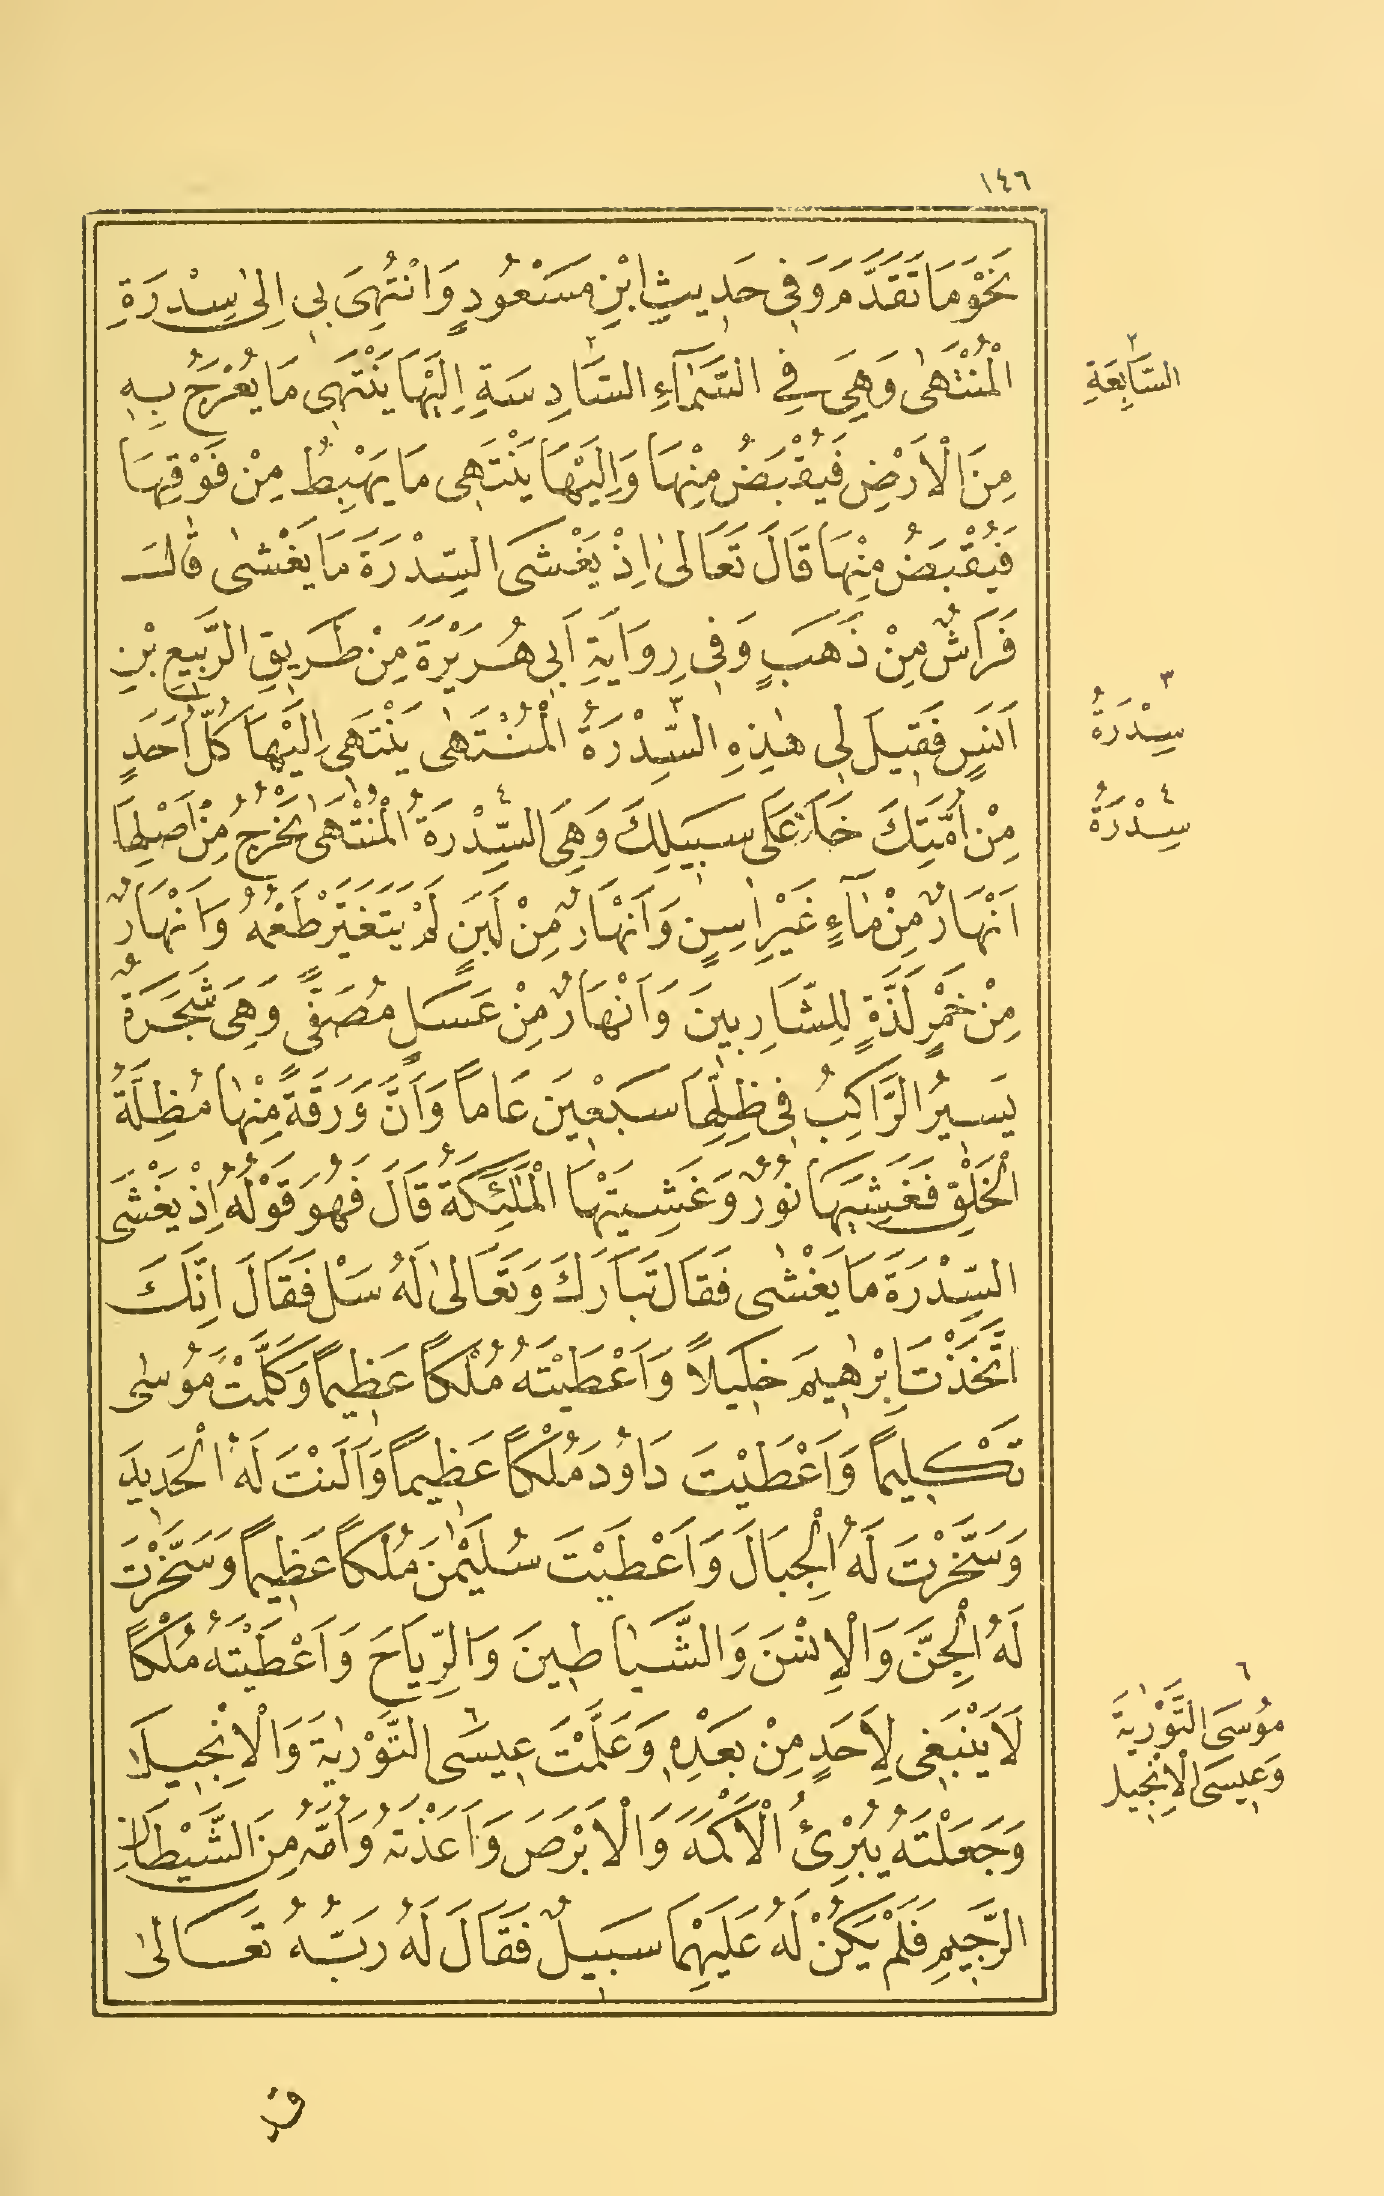 ١٤٦
نَحْوَ مَا تَقَدَّمَ وَفِى حَدِيثِ ابْنِ مَسْعُودٍ وَانْتُهِىَ بِى اِلىٰ سِدْرَةِ
الْمُنْتَهىٰ وَهِىَ فِى السَّمَآءِ السَّادِسَةِ ٢ اِلَيْهَا يَنْتَهِى مَا يُعْرَجُ بِهِ
السَّابِعَةِ ٢
مِنَ الْاَرْضِ فَيُقْبَضُ مِنْهَا وَاِلَيْهَا يَنْتَهِى مَا يَهْبِطُ مِنْ فَوْقِهَا
فَيُقْبَضُ مِنْهَا قَالَ تَعَالىٰ اِذْ يَغْشَى السِّدْرَةَ مَا يَغْشىٰ قَالَ
فَرَاشٌ مِنْ ذَهَبٍ وَفِى رِوَايَةِ اَبِى هُرَيْرَةَ مِنْ طَرِيقِ الرَّبِيعِ بْنِ
اَنَسٍ فَقِيلَ لِى هٰذِهِ السِّدْرَةُ ٣ الْمُنْتَهىٰ يَنْتَهِى اِلَيْهَا كُلُّ اَحَدٍ
سِدْرَةُ ٣
مِنْ اُمَّتِكَ خَلَا عَلىٰ سَبِيلِكَ وَهِىَ السِّدْرَةُ ٤ الْمُنْتَهىٰ يَخْرُجُ مِنْ اَصْلِهَا
سِدْرَةُ ٤
اَنْهَارٌ مِنْ مَآءٍ غَيْرِ اٰسِنٍ وَاَنْهَارٌ مِنْ لَبَنٍ لَمْ يَتَغَيَّرْ طَعْمُهُ وَاَنْهَارٌ
مِنْ خَمْرٍ لَذَّةٍ لِلشَّارِبِينَ وَاَنْهَارٌ مِنْ عَسَلٍ مُصَفًّى وَهِىَ شَجَرَةٌ
يَسِيرُ الرَّاكِبُ فِى ظِلِّهَا سَبْعِينَ عَامًا وَاَنَّ وَرَقَةً مِنْهَا مُظِلَّةُ
الْخَلْقِ فَغَشِيَهَا نُورٌ وَغَشِيَتْهَا الْمَلٰئِكَةُ قَالَ فَهُوَ قَوْلُهُ اِذْ يَغْشَى
السِّدْرَةَ مَا يَغْشىٰ فَقَالَ تَبَارَكَ وَتَعَالىٰ لَهُ سَلْ فَقَالَ اِنَّكَ
اتَّخَذْتَ اِبْرٰهِيمَ خَلِيلًا وَاَعْطَيْتَهُ مُلْكًا عَظِيمًا وَكَلَّمْتَ مُوسٰى
تَكْلِيمًا وَاَعْطَيْتَ دَاوُدَ مُلْكًا عَظِيمًا وَاَلَنْتَ لَهُ الْحَدِيدَ
وَسَخَّرْتَ لَهُ الْجِبَالَ وَاَعْطَيْتَ سُلَيْمٰنَ مُلْكًا عَظِيمًا وَسَخَّرْتَ
لَهُ الْجِنَّ وَالْاِنْسَ وَالشَّيَاطِينَ وَالرِّيَاحَ وَاَعْطَيْتَهُ مُلْكًا
لَا يَنْبَغِى لِاَحَدٍ مِنْ بَعْدِهِ وَعَلَّمْتَ عِيسَى ٦ التَّوْرٰيةَ وَالْاِنْجِيلَ
مُوسَى التَّوْرٰيةَ ٦
وَعِيسَى الْاِنْجِيلَ
وَجَعَلْتَهُ يُبْرِئُ الْاَكْمَهَ وَالْاَبْرَصَ وَاَعَذْتَهُ وَاُمَّهُ مِنَ الشَّيْطَانِ
الرَّجِيمِ فَلَمْ يَكُنْ لَهُ عَلَيْهِمَا سَبِيلٌ فَقَالَ لَهُ رَبُّهُ تَعَالىٰ